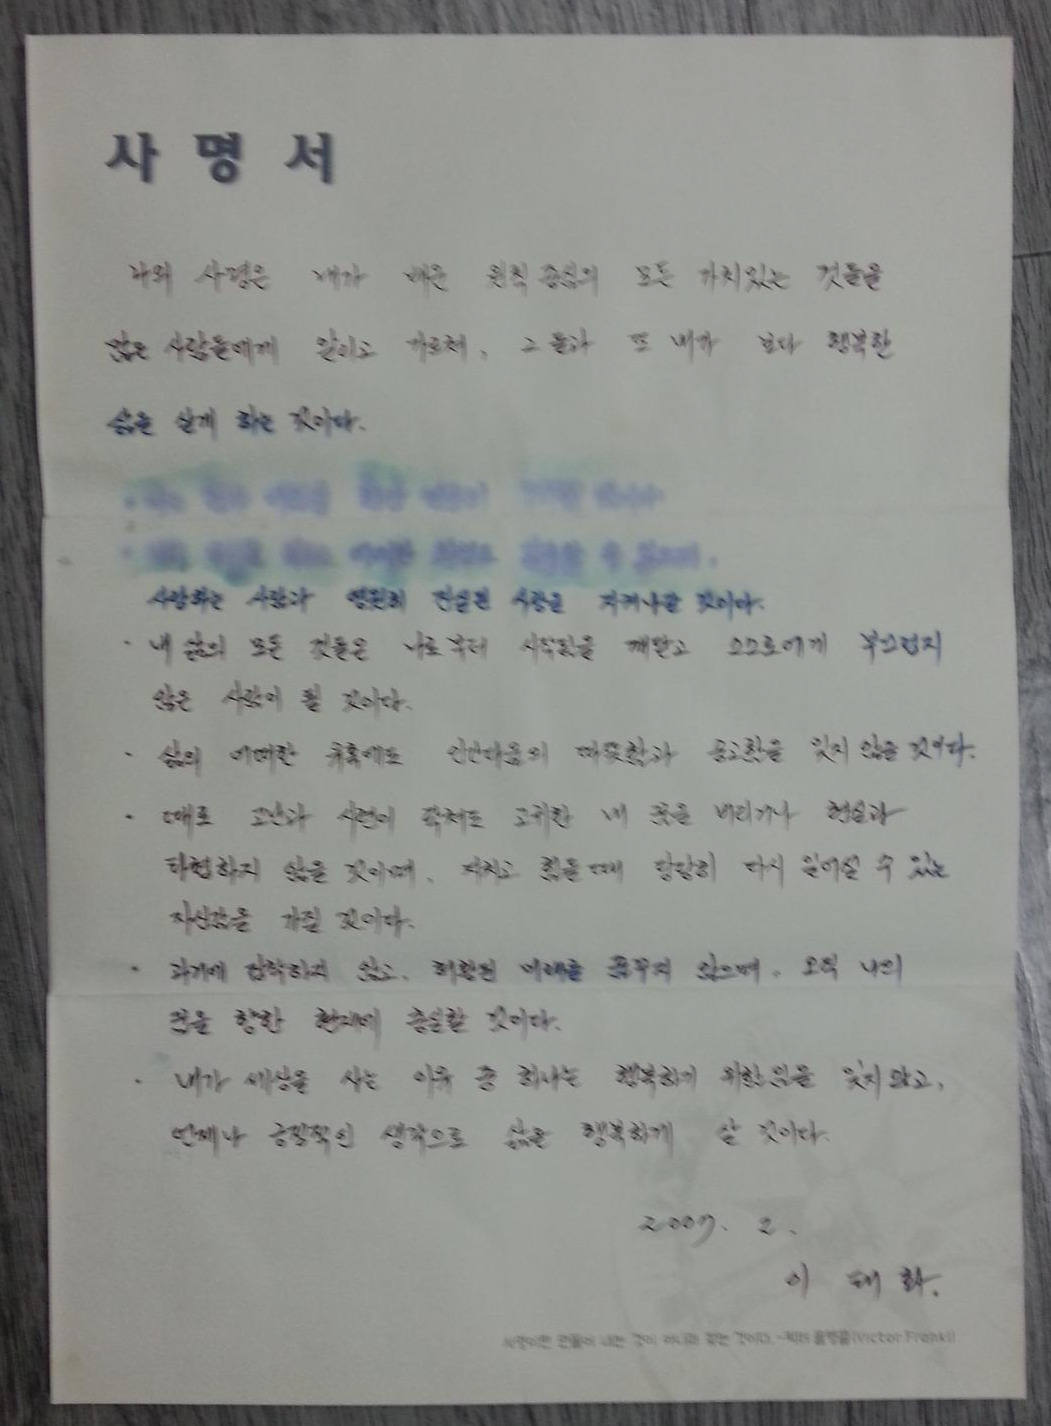 사 명 서
나의 사명은 내가 배운 원칙 중심의 모든 가치있는 것들을
많은 사람들에게 알리고 가르쳐, 그들과 또 내가 보다 행복한
삶을 살게 하는 것이다.
사랑하는 사람과 영원히 진실된 사랑을 지켜나갈 것이다.
· 내 삶의 모든 것들은 나로부터 시작됨을 깨닫고 스스로에게 부끄럽지
않은 사람이 될 것이다.
· 삶의 어떠한 유혹에도 인간다움의 따뜻함과 숭고함을 잊지 않을 것이다.
· 때로 고난과 시련이 닥쳐도 고귀한 내 꿈을 버리거나 현실과
타협하지 않을 것이며, 지치고 힘들때 당당히 다시 일어설 수 있는
자신감을 가질 것이다.
· 과거에 집착하지 않고, 허황된 미래를 꿈꾸지 않으며, 오직 나의
꿈을 향한 현재에 충실할 것이다.
· 내가 세상을 사는 이유 중 하나는 행복하기 위함임을 잊지 않고,
언제나 긍정적인 생각으로 삶을 행복하게 살 것이다.
2007. 2.
이 태 화.
사명이란 만들어 내는 것이 아니라 찾는 것이다. (Victor Frankl)